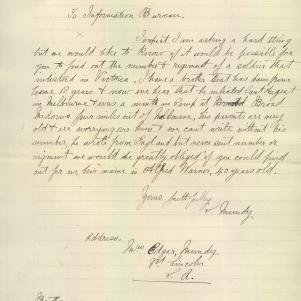 To Information Bureau
I expect I am asking a hard thing
but we would like to know if it would be possible for
you to find out the number & regiment of a soldier that
inlisted in Victoria, I have a brother that has been from
home 12 years & now we hear that he inlisted last August
in Melbourne & was a month in camp at Broad
Medows four miles out of Melbourne, his parents are very
old & are worrying over him & we can't write without his
number, he wrote from England but never sent number or
rigment we would be greatly obliged if you could find
out for us his name is Alfred Warner, 40 years old.
Yours faithfully
L. Mundy.
Address.
Mrs Edgar Mundy
Port Lincoln
S. A.